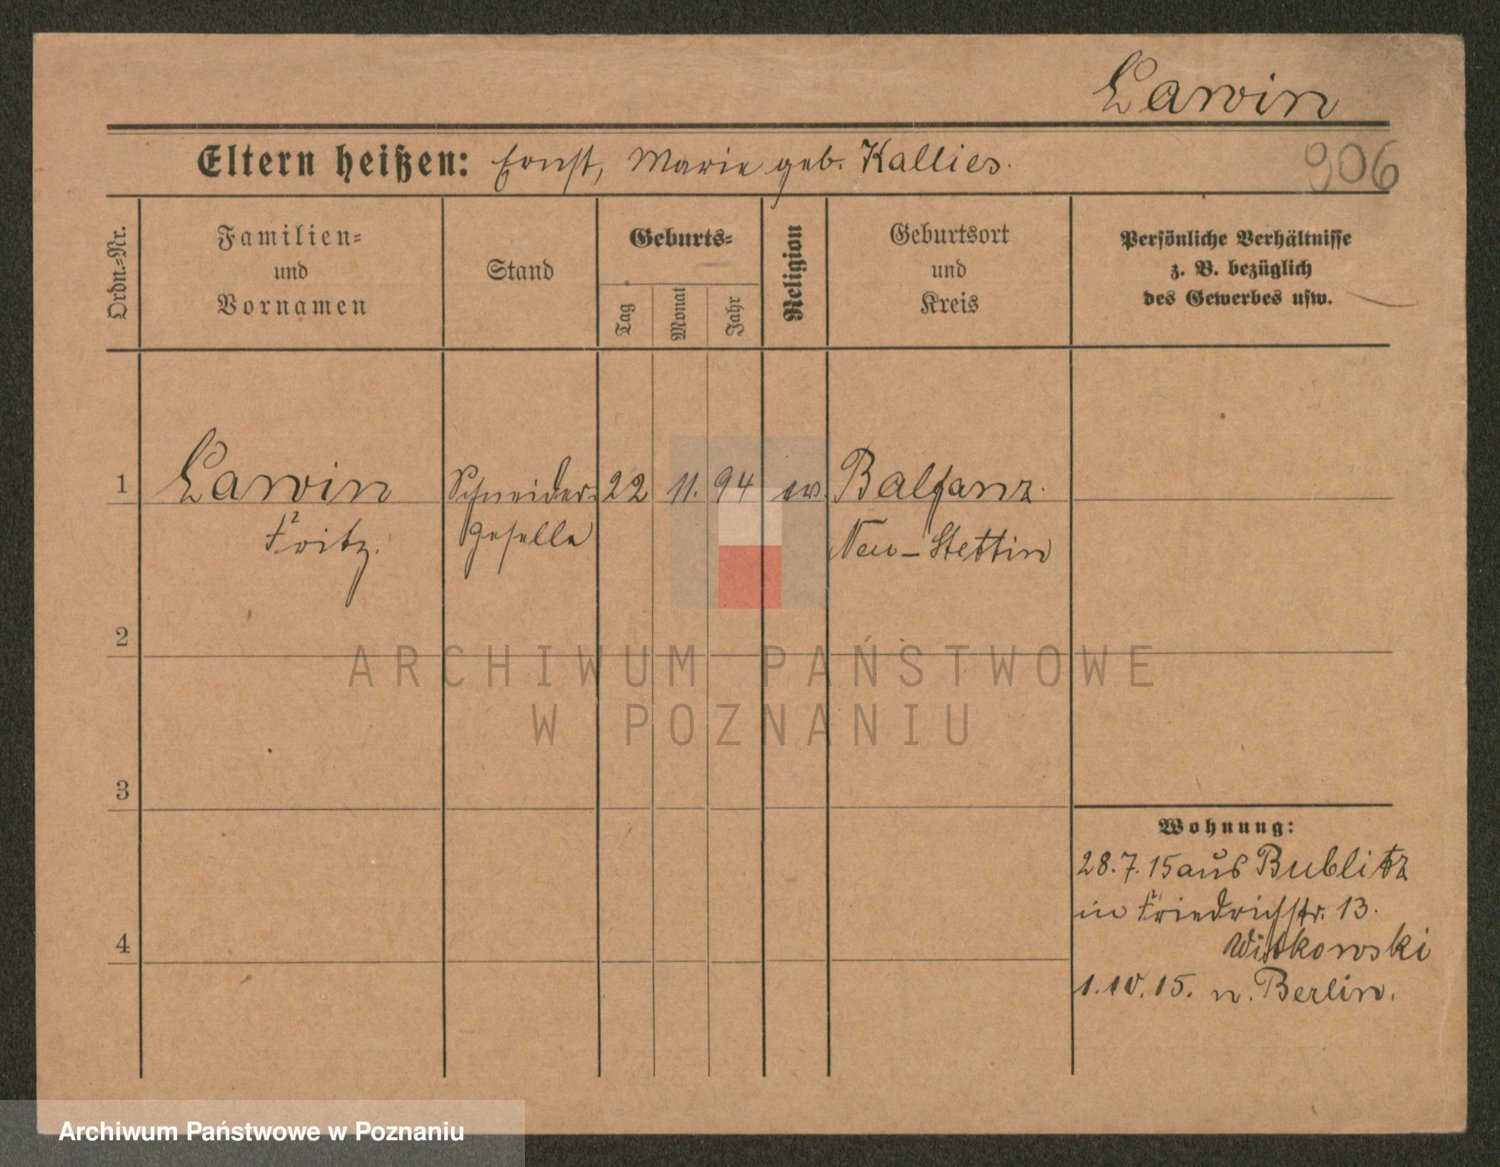 Larwin
Eltern heißen: Ernst, Marie geb. Kallies.
906
Ordn.=Nr.
Familien=
und
Vornamen
Stand
Geburts=
Tag
Monat
Jahr
Religion
Geburtsort
und
Kreis
Persönliche Verhältnisse
z. B. bezüglich
des Gewerbes usw.
1 Larwin Schneider= 22 11. 94 ev. Balfanz.
Fritz. geselle Neu-Stettin
2
ARCHIWUM PAŃSTWOWE
W POZNANIU
3
Wohnung:
28.7.15 aus Bublitz
in Friedrichstr. 13.
Witkowski
4
1.10.15. n. Berlin.
Archiwum Państwowe w Poznaniu